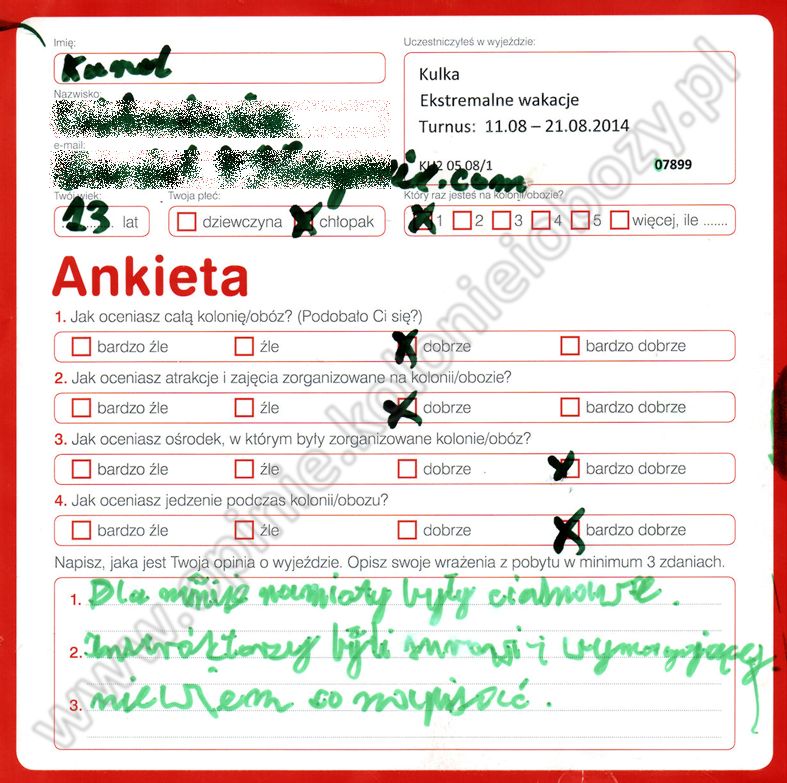 Imię:
Karol
Uczestniczyłeś w wyjeździe:
Kulka
Ekstremalne wakacje
Turnus: 11.08 – 21.08.2014
05 08/1 07899
Nazwisko:
e-mail:
.com
Twój wiek:
13 lat
Twoja płeć:
dziewczyna chłopak
Który raz jesteś na kolonii/obozie?
1 2 3 4 5 więcej, ile .......
Ankieta
1. Jak oceniasz całą kolonię/obóz? (Podobało Ci się?)
bardzo źle źle dobrze bardzo dobrze
2. Jak oceniasz atrakcje i zajęcia zorganizowane na kolonii/obozie?
bardzo źle źle dobrze bardzo dobrze
3. Jak oceniasz ośrodek, w którym były zorganizowane kolonie/obóz?
bardzo źle źle dobrze bardzo dobrze
4. Jak oceniasz jedzenie podczas kolonii/obozu?
bardzo źle źle dobrze bardzo dobrze
Napisz, jaka jest Twoja opinia o wyjeździe. Opisz swoje wrażenia z pobytu w minimum 3 zdaniach.
1. Dla mnie namioty były
2. byli surowi i wymagający.
3. niewiem co napisać.
www.opinie.kolonieiobozy.pl